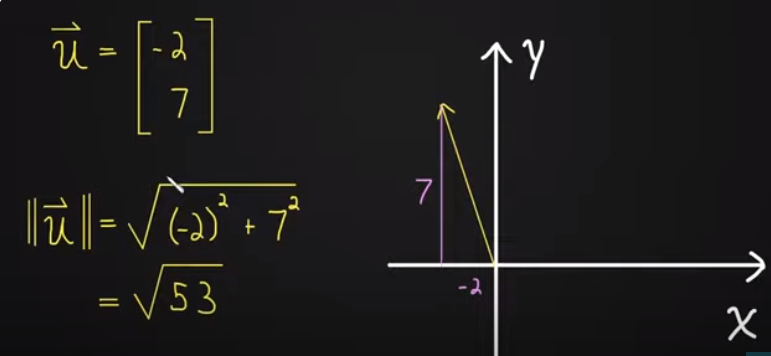 u⃗ = [-2
7]
‖u⃗‖ = √((-2)² + 7²)
= √53
y
7
-2
x